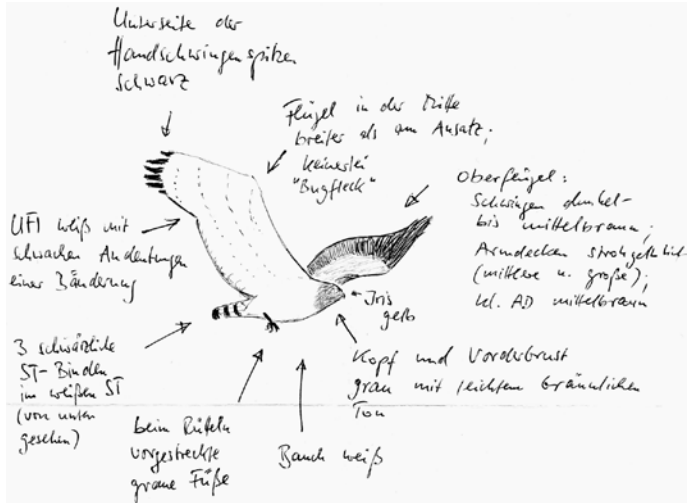 Unterseite der
Handschwingenspitzen
schwarz
Flügel in der Mitte
breiter als am Ansatz;
keinerlei
"Bugfleck"
Oberflügel:
Schwingen dunkel-
bis mittelbraun;
Armdecken strohgelblich
(mittlere u. große);
kl. AD mittelbraun
UFl weiß mit
schwachen Andeutungen
einer Bänderung
Iris
gelb
3 schwärzliche
ST-Binden
im weißen ST
(von unten
gesehen)
Kopf und Vorderbrust
grau mit leichtem bräunlichen
Ton
beim Rütteln
vorgestreckte
graue Füße
Bauch weiß